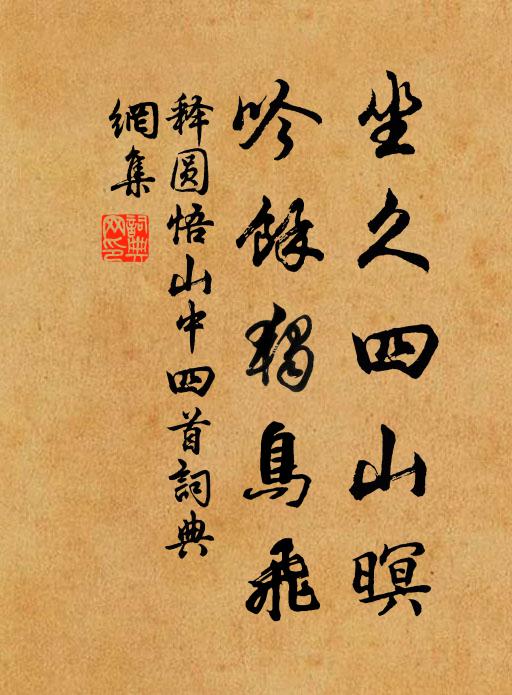 坐久四山暝
吟馀独鸟飛
释圆悟山中四首詞典
網集
詞典
网印